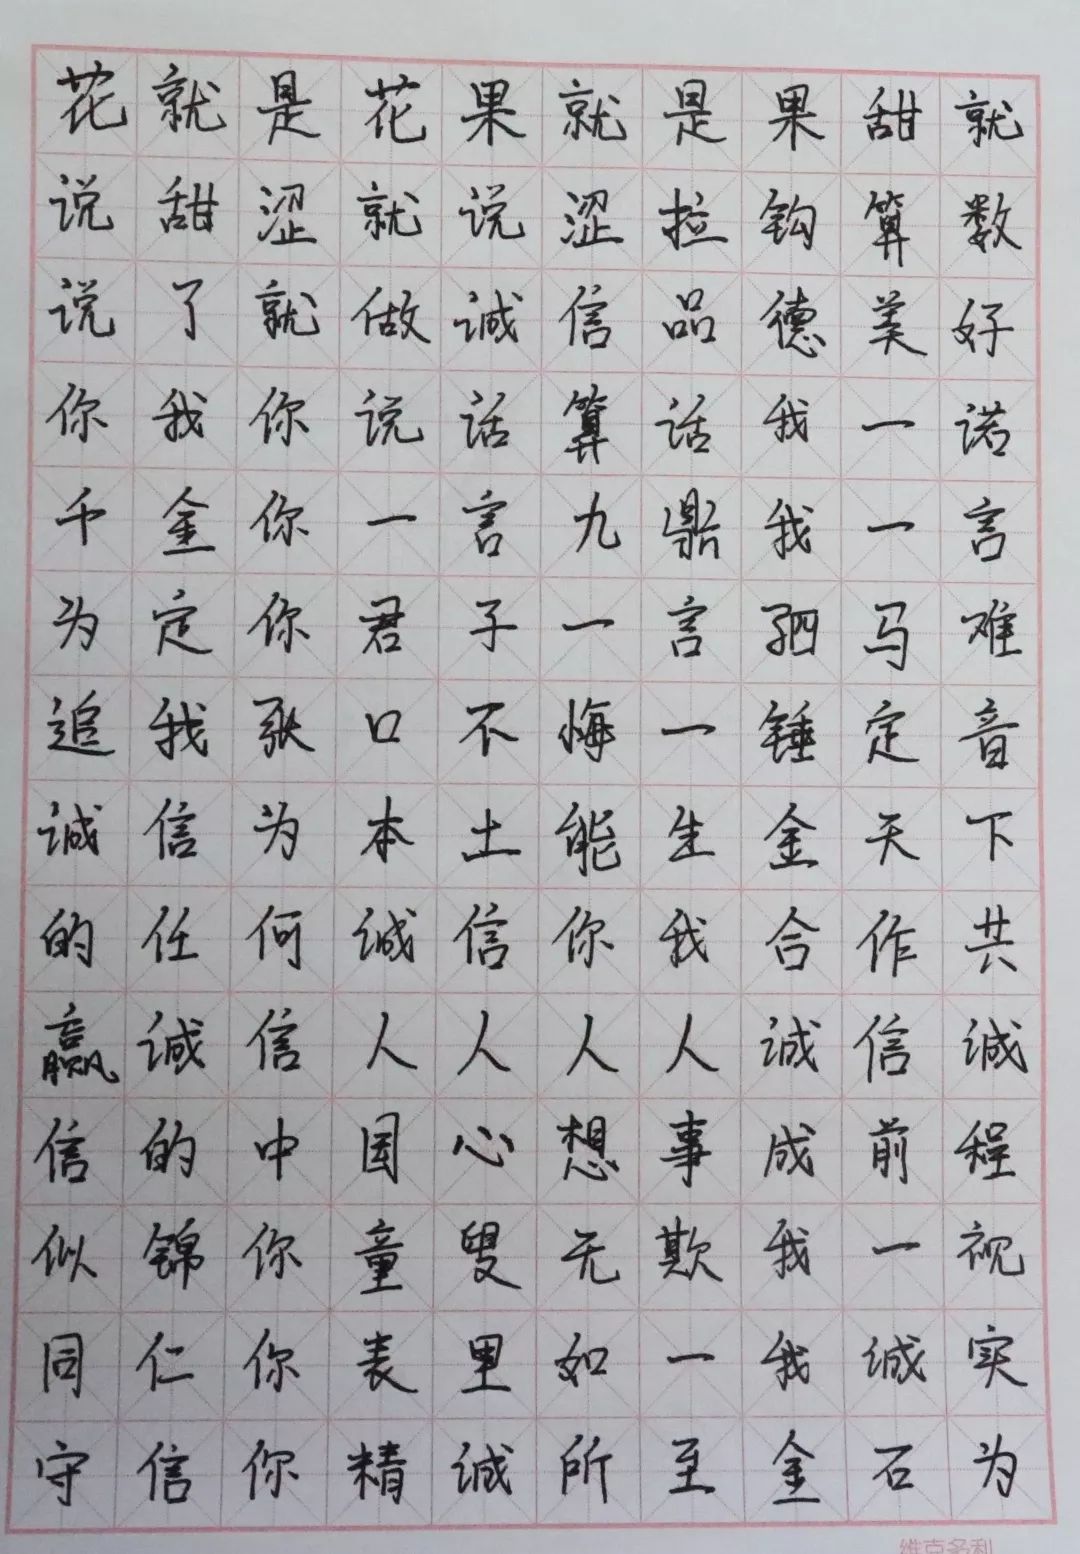 花就是花果就是果甜就
说甜涩就说涩拉钩算数
说了就做诚信品德美好
你我你说话算话我一诺
千金你一言九鼎我一言
为定你君子一言驷马难
追我张口不悔一锤定音
诚信为本土能生金天下
的任何诚信你我合作共
赢诚信人人人人诚信诚
信的中国心想事成前程
似锦你童叟无欺我一视
同仁你表里如一我诚实
守信你精诚所至金石为
维克多利